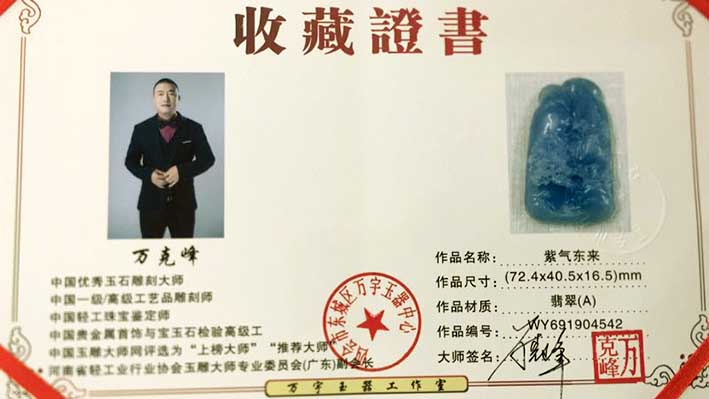 收藏證書
万克峰
中国优秀玉石雕刻大师
中国一级/高级工艺品雕刻师
中国轻工珠宝鉴定师
中国贵金属首饰与宝玉石检验高级工
中国玉雕大师网评选为“上榜大师”“推荐大师”
河南省轻工业行业协会玉雕大师专业委员会(广东)副会长
会市东城区万宇玉器中心
作品名称: 紫气东来
作品尺寸: (72.4x40.5x16.5)mm
作品材质: 翡翠(A)
作品编号: WY691904542
大师签名:
万克峰
万宇玉器工作室